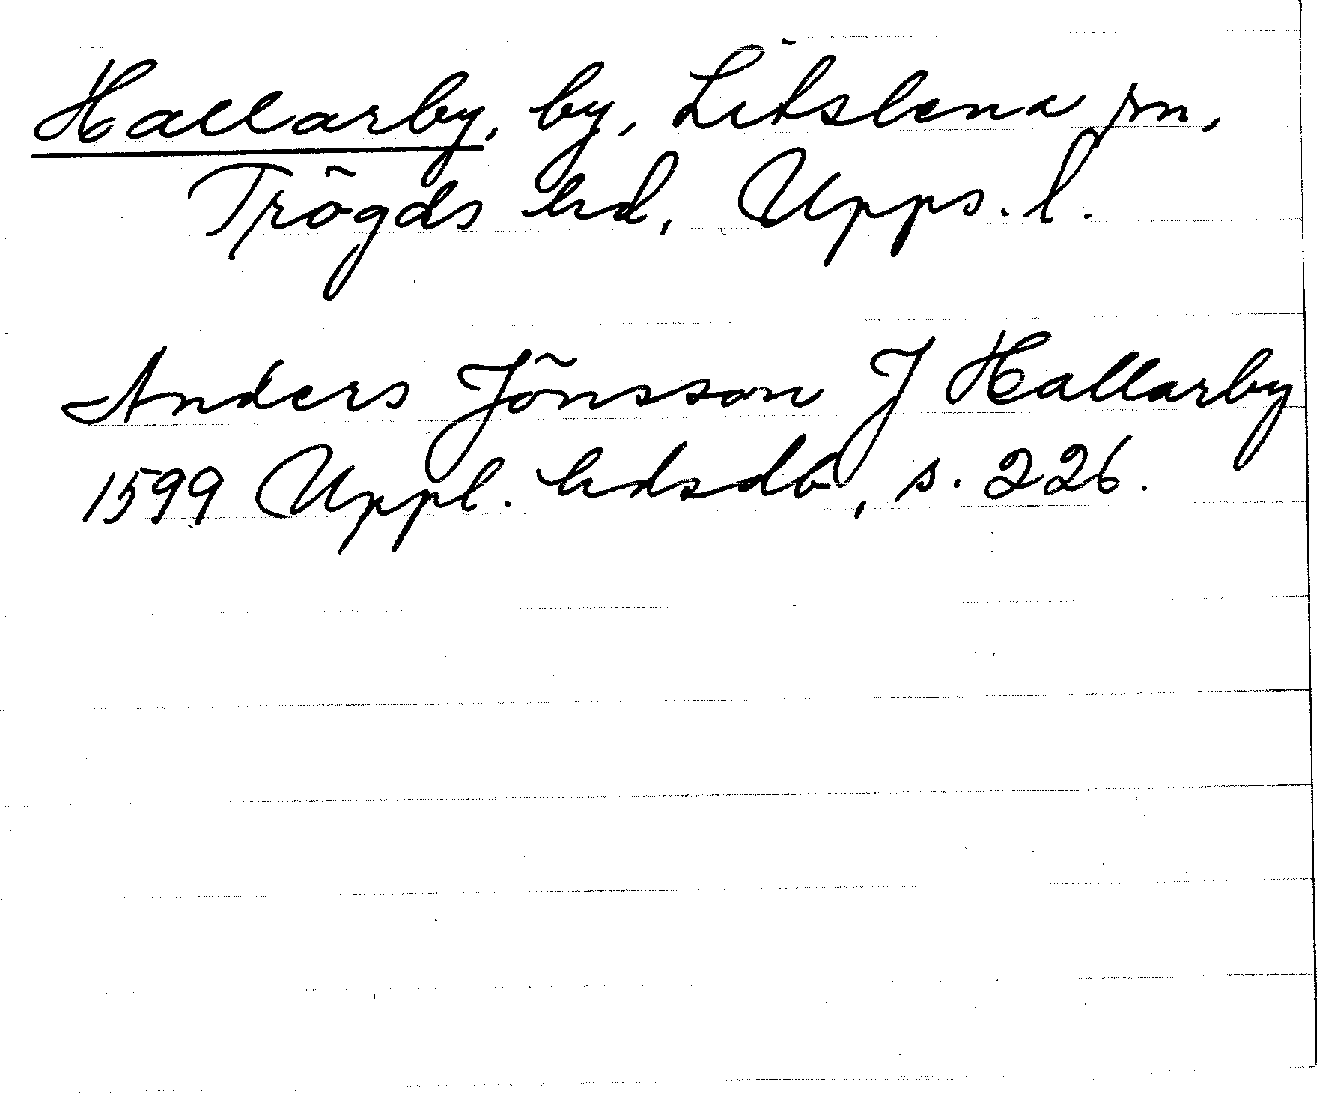 Hallarby, by, Litslena sn,
Trögds hd, Upps. l.
Anders Jönsson J Hallarby
1599 Uppl. hdsdb, s. 226.